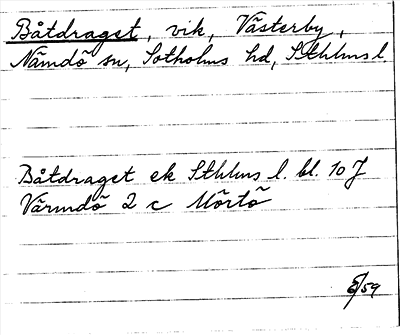 Båtdraget, vik, Västerby,
Nämdö sn, Sotholms hd, Sthlms l.
Båtdraget ek Sthlms l. bl. 10 J
Värmdö 2 c Mörtö
/59